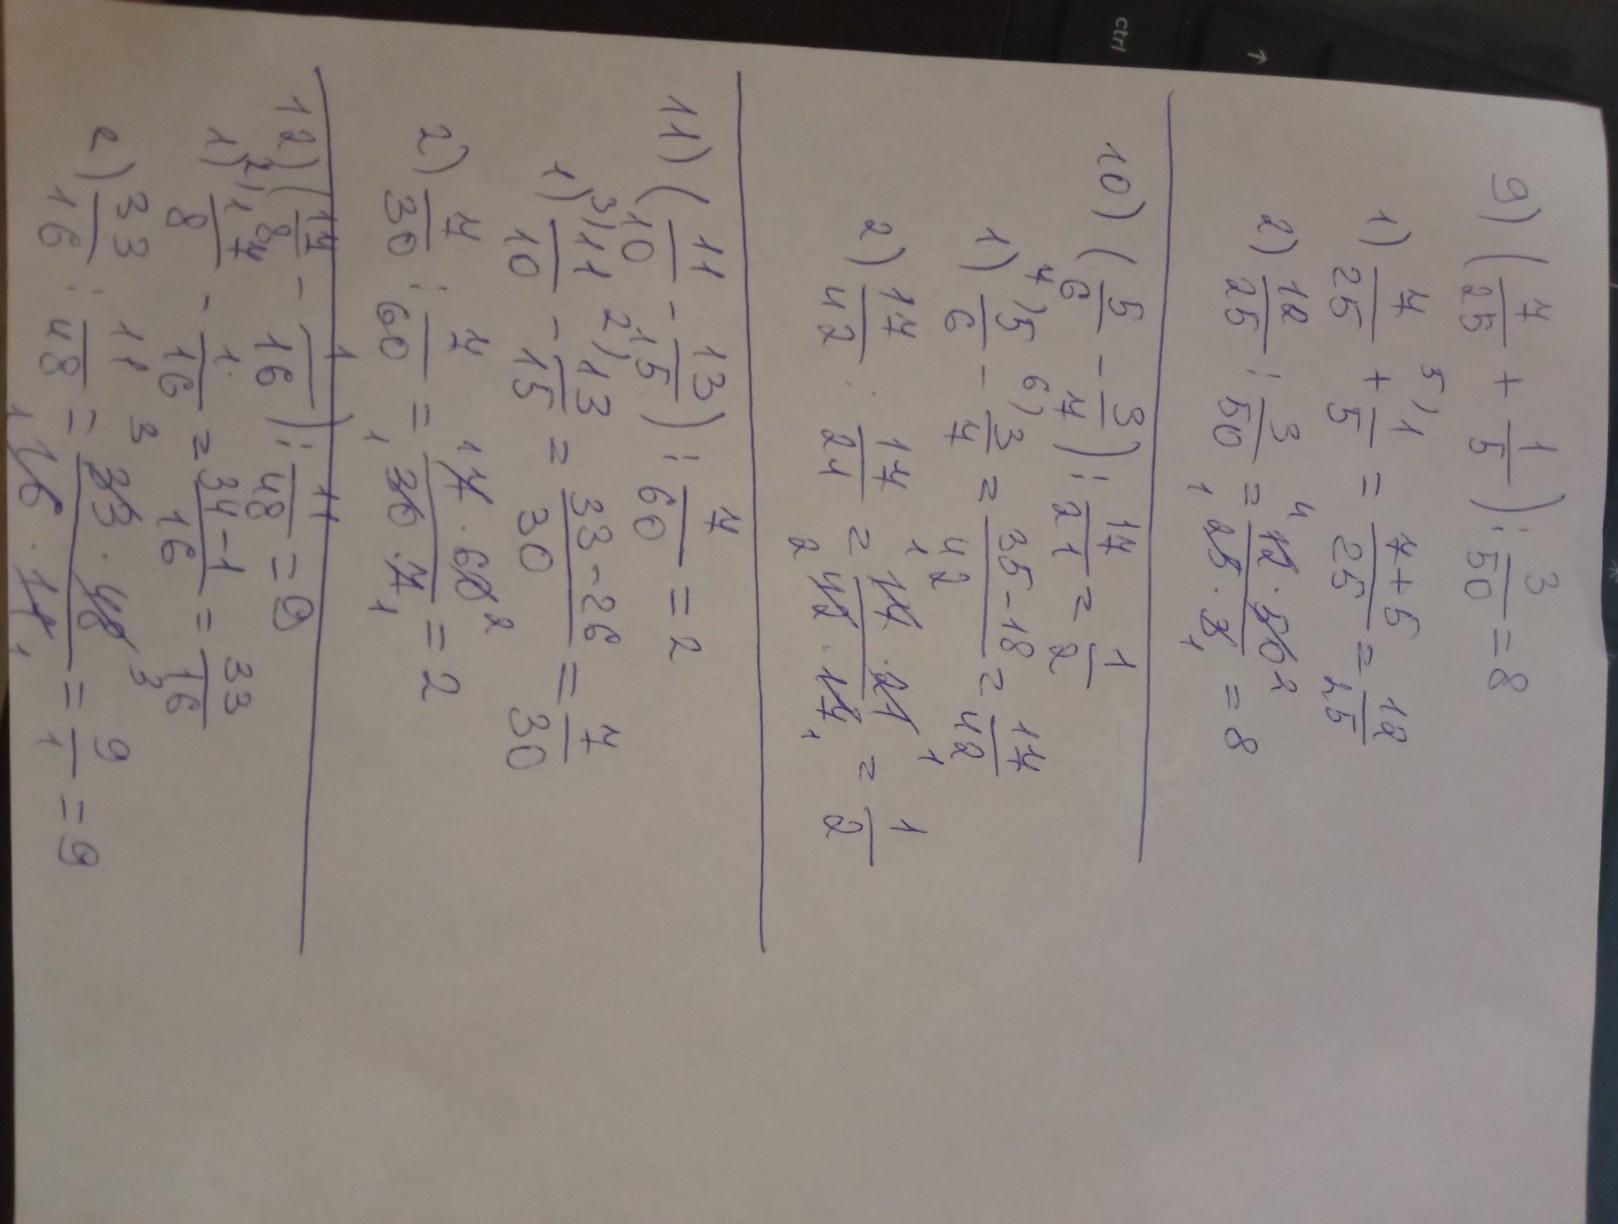 9) (7/25 + 1/5) : 3/50 = 8
1) 7/25 + 5) 1/5 = 7+5/25 = 12/25
2) 12/25 : 3/50 = 4 12·50 2/1 25·3 1 = 8
10) (5/6 - 3/7) : 17/21 = 1/2
1) 7) 5/6 - 6) 3/7 = 35-18/42 = 17/42
2) 17/42 : 17/21 = 1 17·21 1/2 42·17 1 = 1/2
11) (11/10 - 13/15) : 7/60 = 2
1) 3) 11/10 - 2) 13/15 = 33-26/30 = 7/30
2) 7/30 : 7/60 = 1 7·60 2/1 30·7 1 = 2
12) (17/8 - 1/16) : 11/48 = 9
1) 2) 17/8 - 1/16 = 34-1/16 = 33/16
2) 33/16 : 11/48 = 3 33·48 3/1 16·11 1 = 9/1 = 9
ctrl
↑